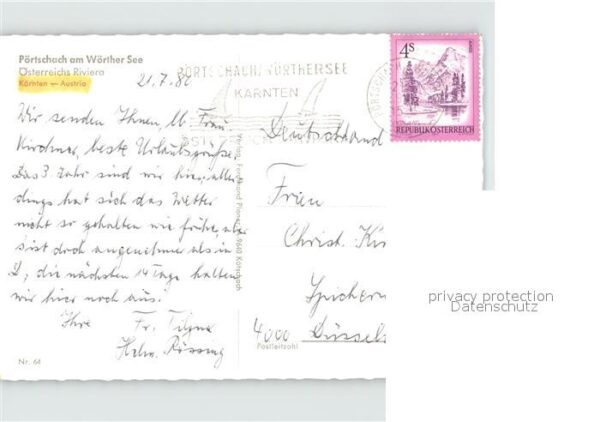 Pörtschach am Wörther See
Österreichs Riviera
Kärnten — Austria
21.7.80
PÖRTSCHACH/WÖRTHERSEE
KÄRNTEN
4s
REPUBLIK ÖSTERREICH
Wir senden Ihnen, lb. Frau
Kirchner, beste Urlaubsgrüße.
Das 3. Jahr sind wir hier, aller
dings hat sich das Wetter
nicht so gehalten wie früher, aber
s'ist doch angenehmer als in
D, die nächsten 14 Tage halten
wir hier noch aus.
Ihre Fr.
Helm. Rössing
Nr. 64
Verlag Ferdinand 9640 Kötschach
Deutschland
Frien
Christ. Kir
Spichern
4000 Düssel
Postleitzahl
privacy protection
Datenschutz